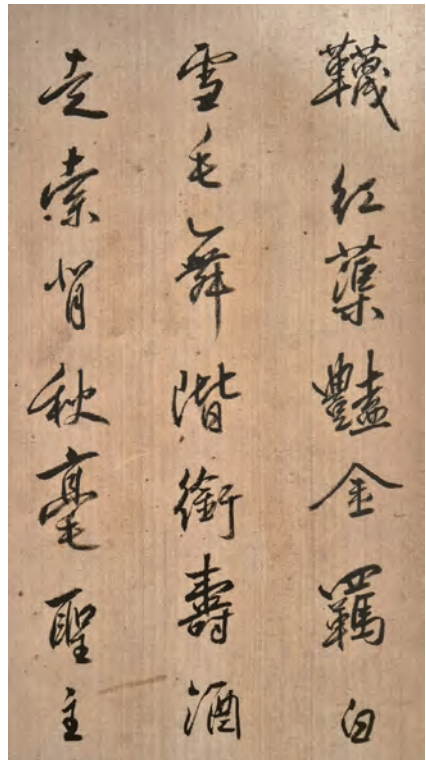 韈紅蕖豔金羈白
雪毛舞階銜壽酒
走索背秋毫聖主